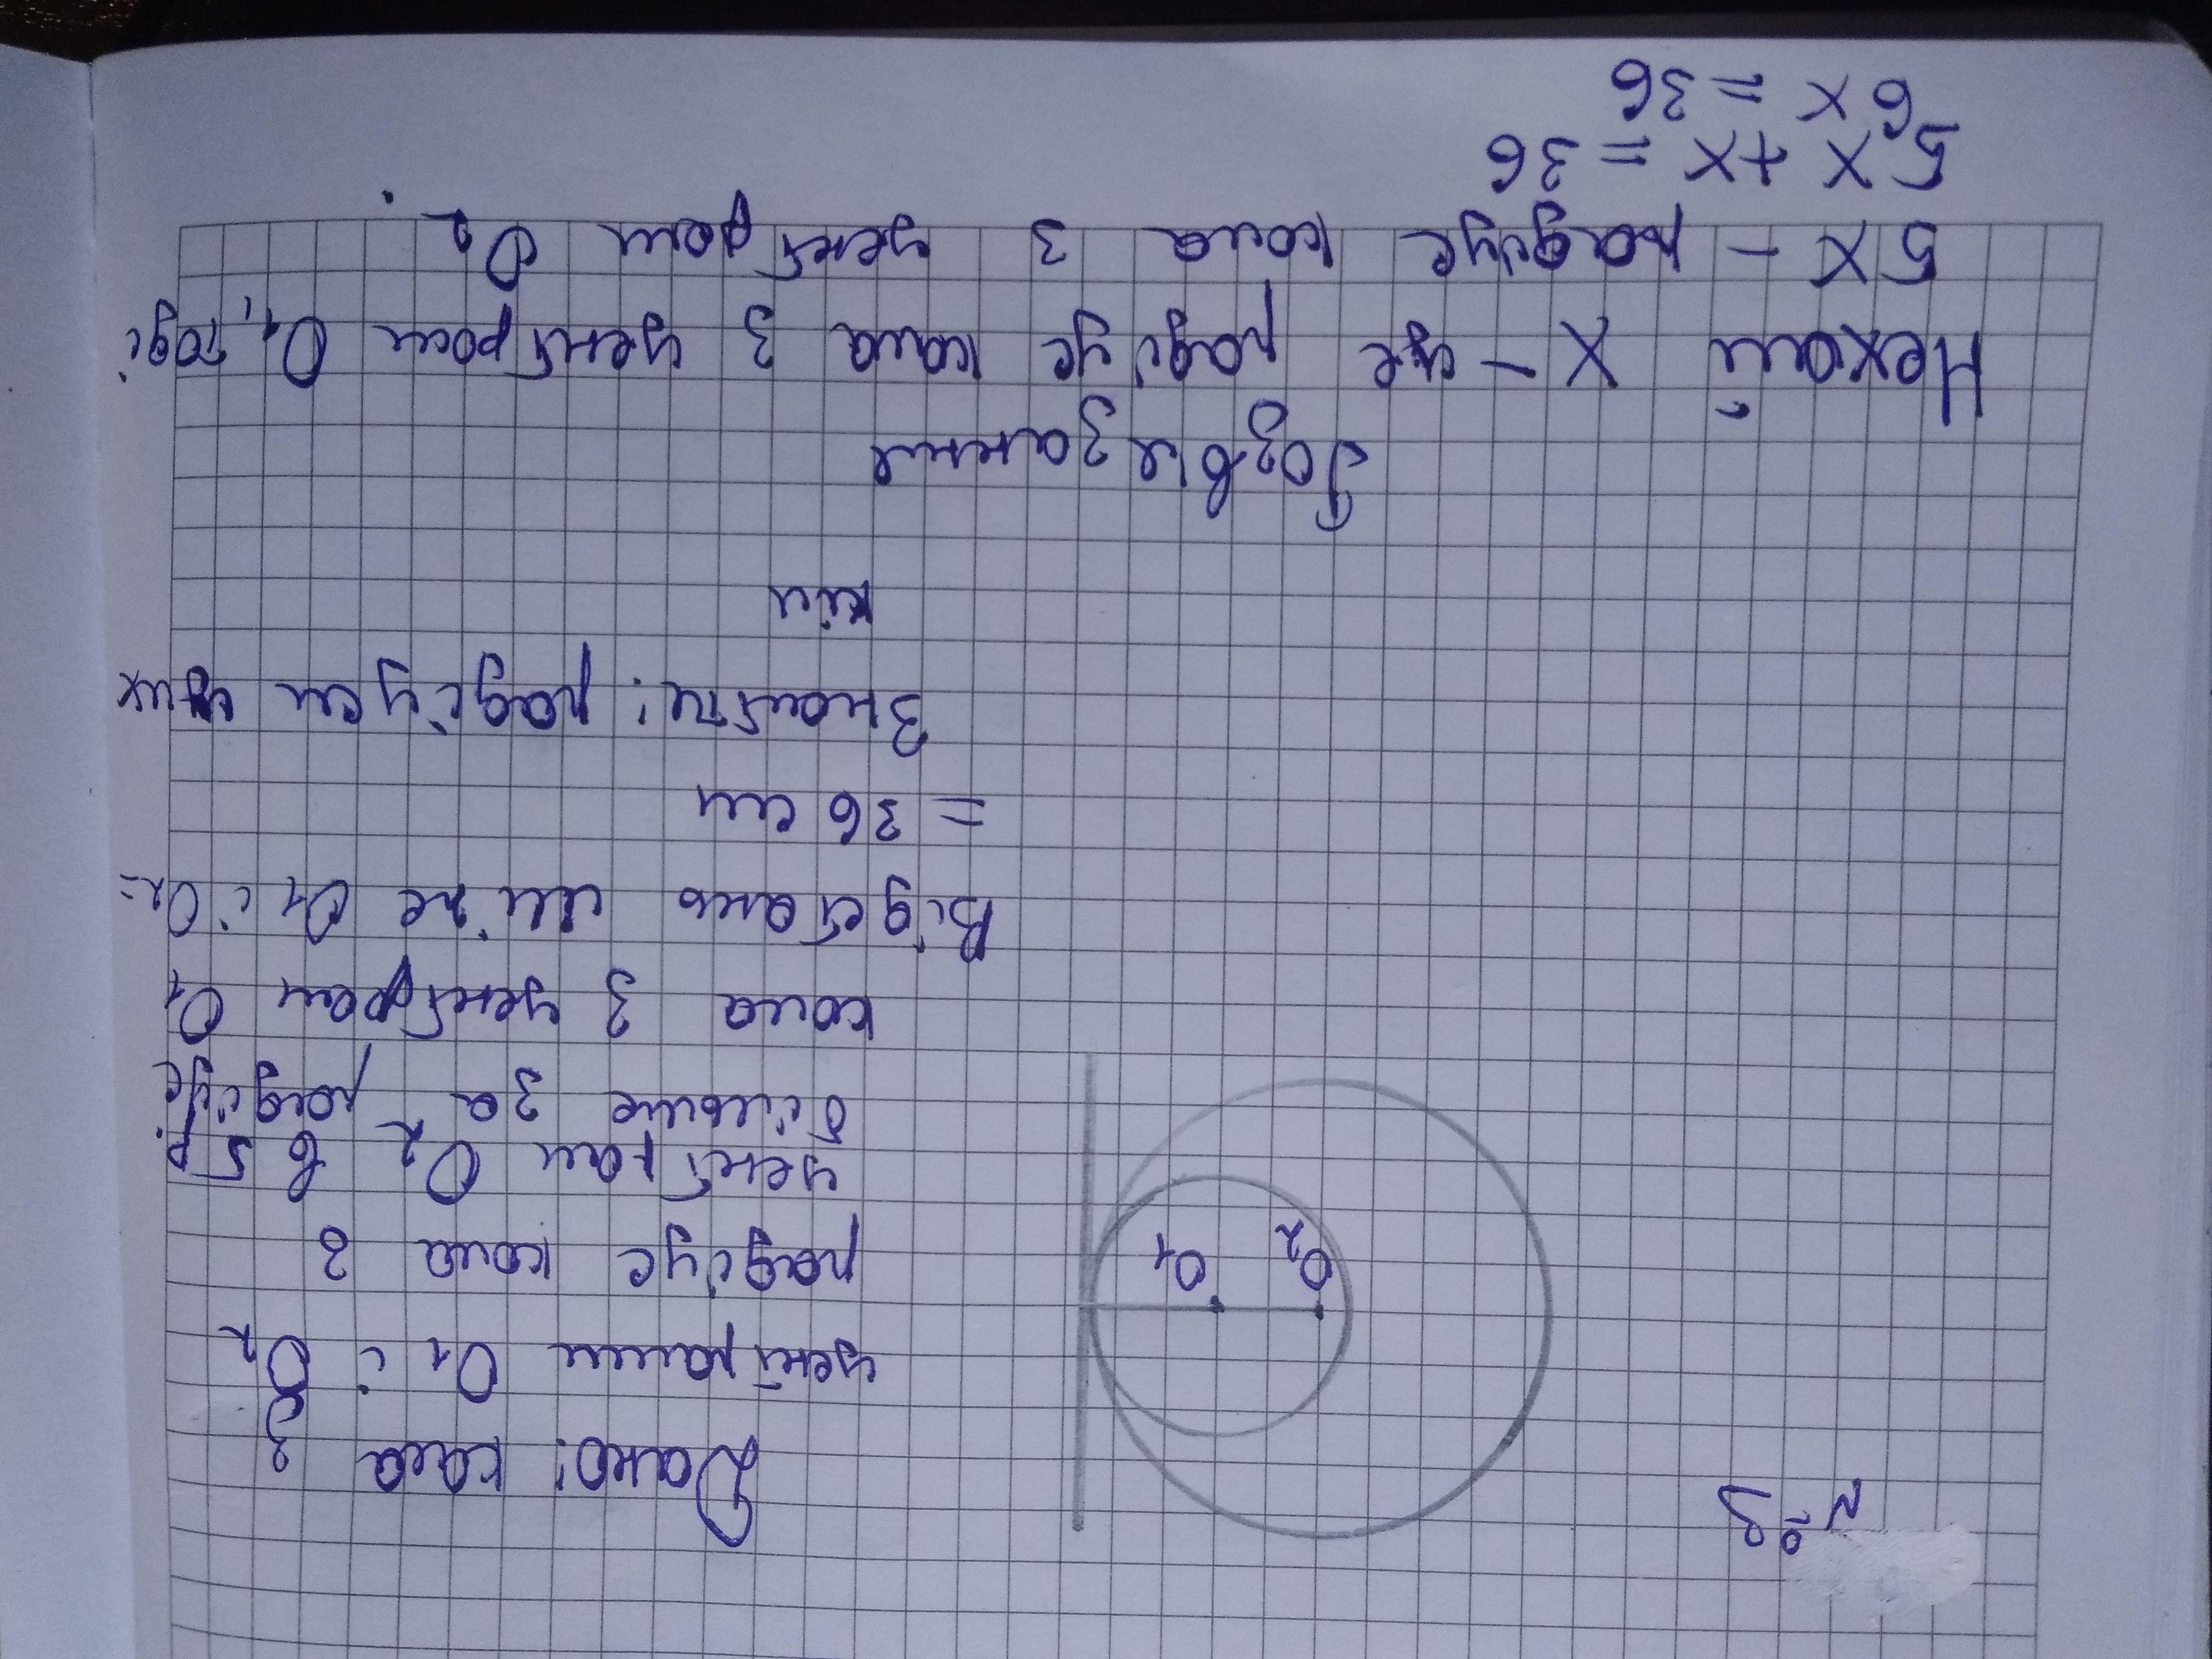 №3
Дано: кола з
центрами O1 і O2
радіус кола з
центром O2 в 5 р.
більше за радіус
кола з центром O1
Відстань між O1 і O2=
= 36 см
Знайти: радіуси цих
кіл
O2
O1
Розв'язання
Нехай x - це радіус кола з центром O1, тоді
5x - радіус кола з центром O2.
5x + x = 36
6x = 36